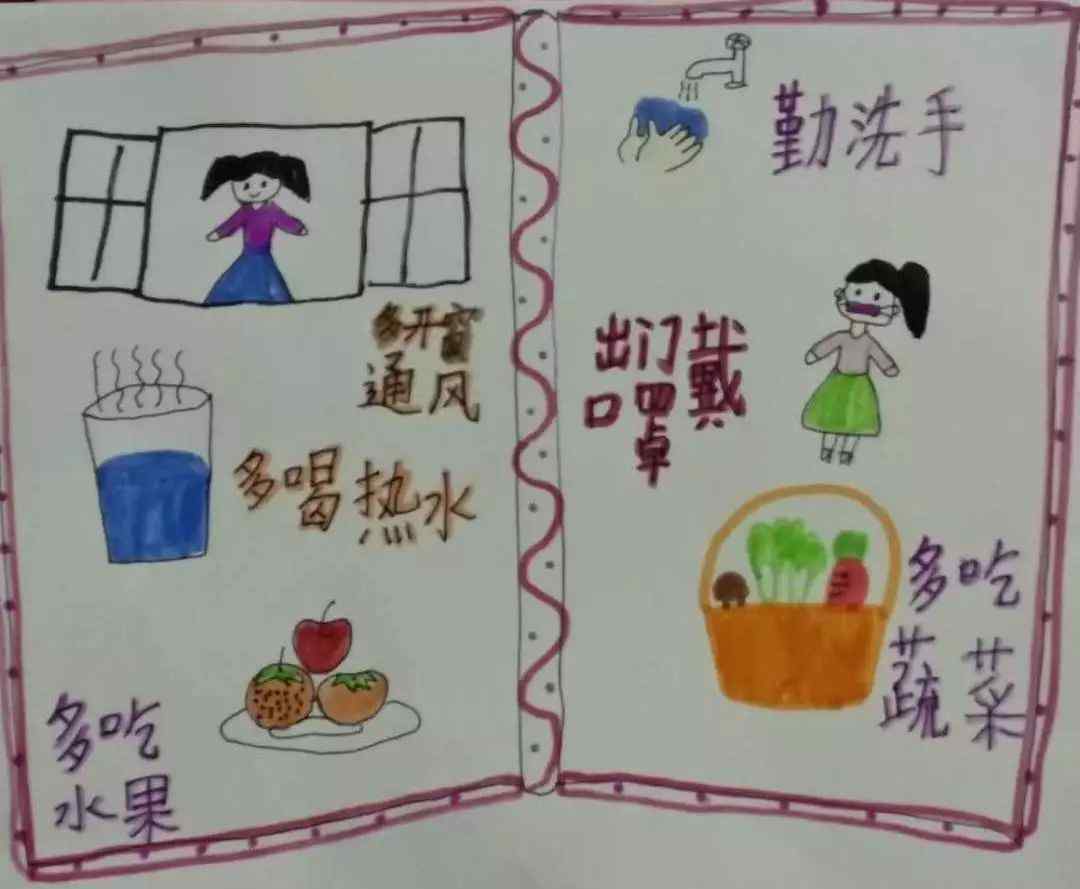 多开窗
通风
多喝热水
多吃
水果
勤洗手
出门戴
口罩
多吃
蔬菜